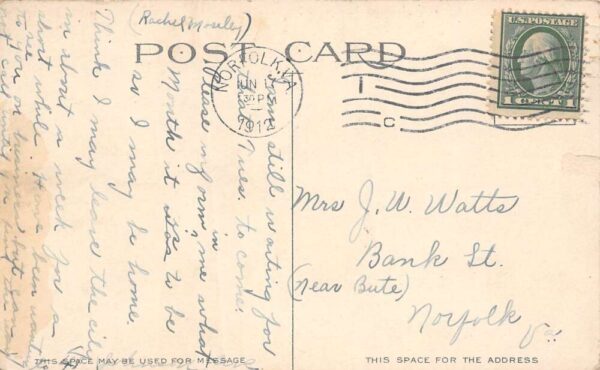 (Rachel Mosely)
POST CARD
NORFOLK, VA.
JUN
PM
1912
U.S. POSTAGE
1 CENT 1
I am still waiting for
Tues. to come.
Please inform me what
in
Month it was to be
as I may be home.
Think I may leave the city
in about a week for a
short while. Have been wanting
to see
you on business but
THIS SPACE MAY BE USED FOR MESSAGE
Mrs J. W. Watts
Bank St.
(near Bute)
Norfolk Va.
THIS SPACE FOR THE ADDRESS